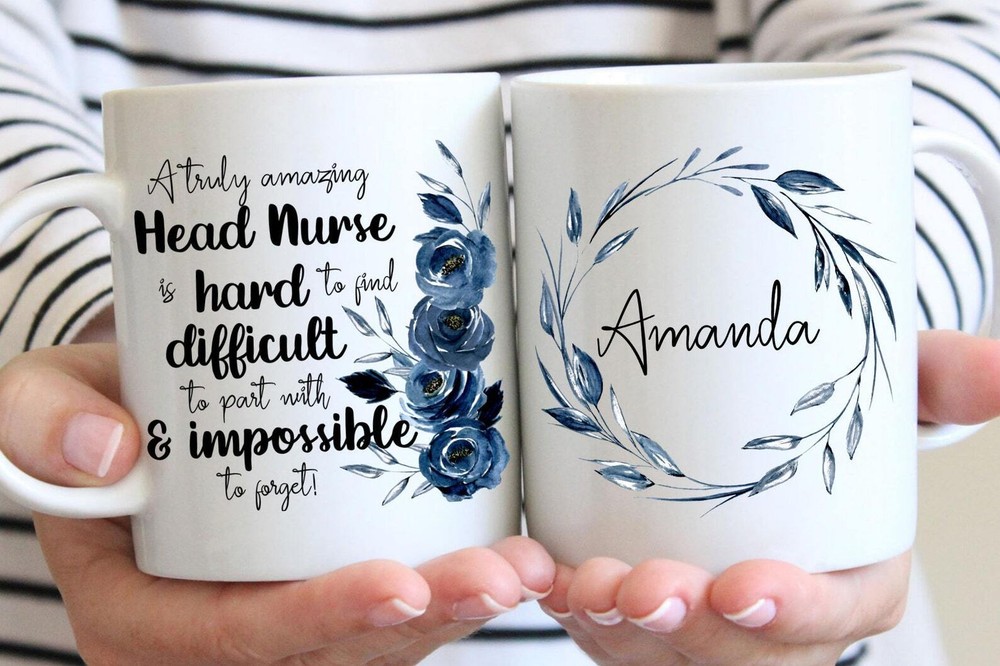 A truly amazing
Head Nurse
is hard to find
difficult
to part with
& impossible
to forget!
Amanda